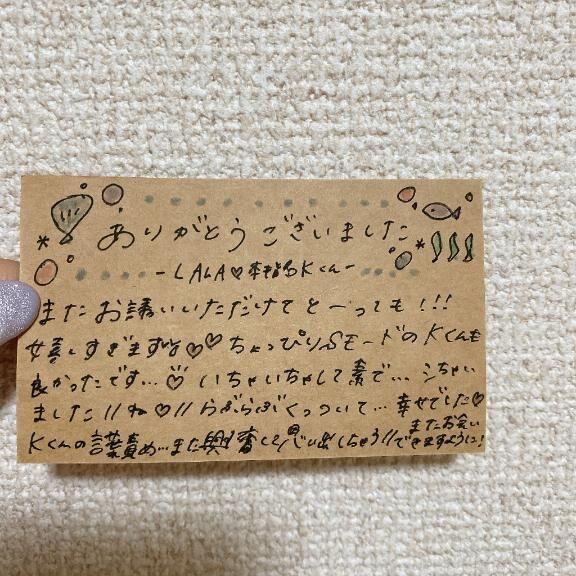 ありがとうございました
-LALA♡本指名Kくん-
またお誘いいただけてとーっても!!!
嬉しすぎますな♡♡ちょっぴりSモードのKくんも
良かったです...♡いちゃいちゃして素で...シちゃい
ました//ね♡//らぶらぶくっついて...幸せでした♡
Kくんの言葉責め...また興奮して思い出しちゃう//
またお会い
できますように!